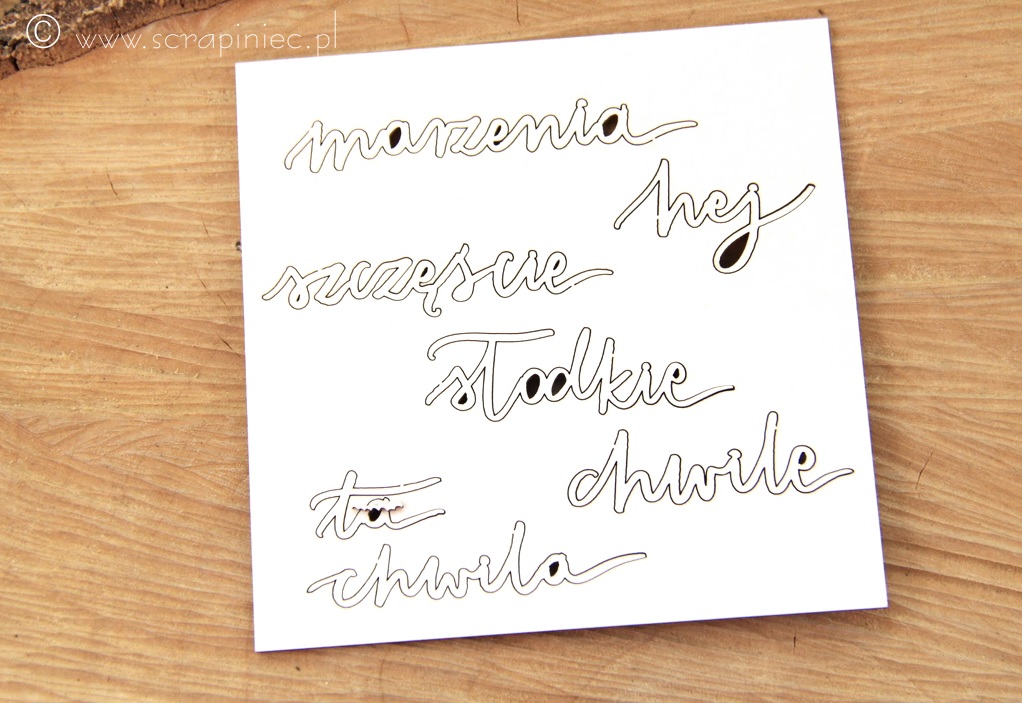 © www.scrapiniec.pl
marzenia
hej
szczęście
słodkie
chwile
ta
chwila